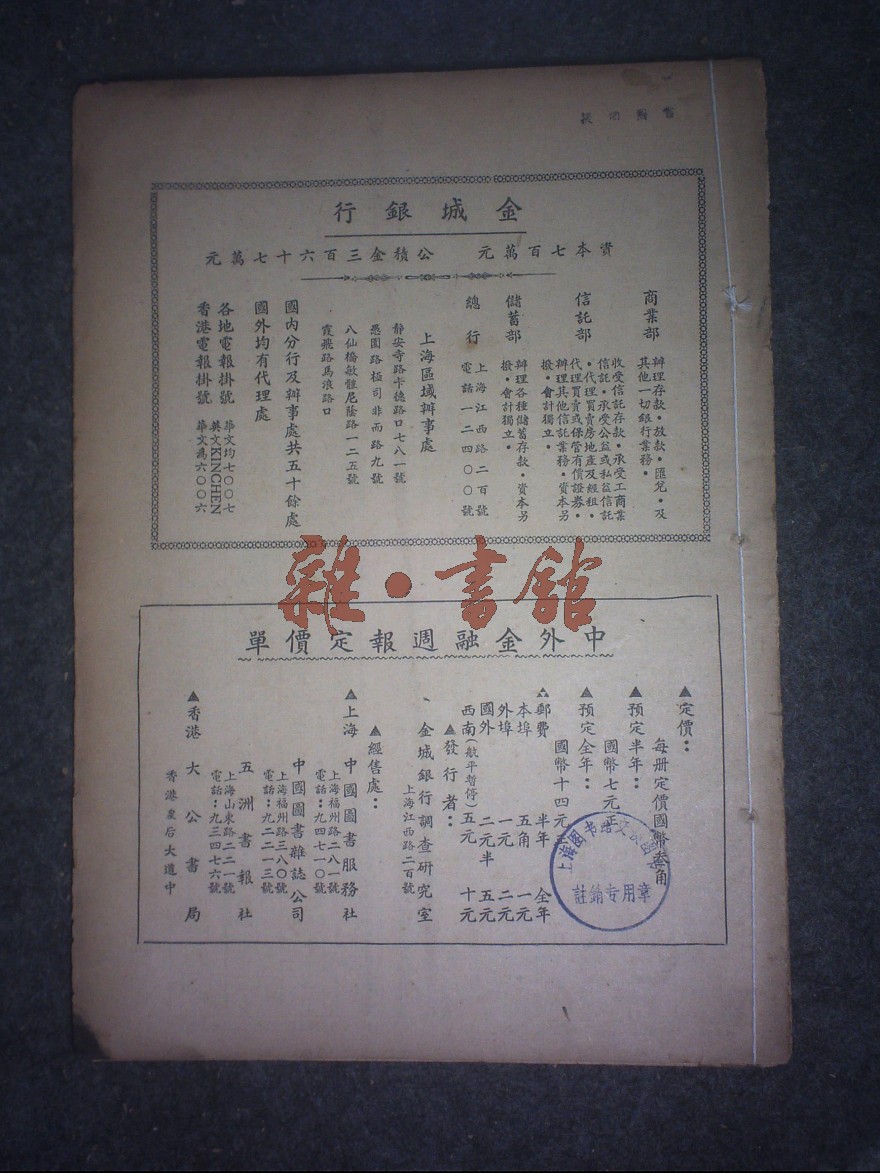 金城銀行
資本七百萬元　公積金三百六十七萬元
商業部
辦理存款·放款·匯兌·及
其他一切銀行業務·
信託部
收受信託存款·承受工商業
信託·承受公益或私益信託
·代理買賣房地產及經租·
代理買賣或保管有價證券·
辦理其他信託業務·資本另
撥·會計獨立·
儲蓄部
辦理各種儲蓄存款·資本另
撥·會計獨立·
總行
上海江西路二百號
電話一二四〇〇號
上海區域辦事處
靜安寺路卡德路口七八一號
愚園路極司非而路九號
八仙橋敏體尼蔭路一二五號
霞飛路馬浪路口
國內分行及辦事處共五十餘處
國外均有代理處
各地電報掛號
華文均七〇〇七
英文KINCHEN
香港電報掛號
華文為六〇〇六
雜·書館
中外金融週報定價單
▲定價：
每册定價國幣叁角
▲預定半年：
國幣七元正
▲預定全年：
國幣十四元
郵費　半年　全年
本埠　五角　一元
外埠　一元　二元
國外　二元半　五元
西南(航平暫停)五元　十元
▲發行者：
金城銀行調查研究室
上海江西路二百號
▲經售處：
▲上海　中國圖書服務社
上海福州路二八一號
電話：九四七一〇號
中國圖書雜誌公司
上海福州路三八〇號
電話：九二二一三號
五洲書報社
上海山東路二二一號
電話：九三四七六號
▲香港　大公書局
香港皇后大道中
註銷专用章